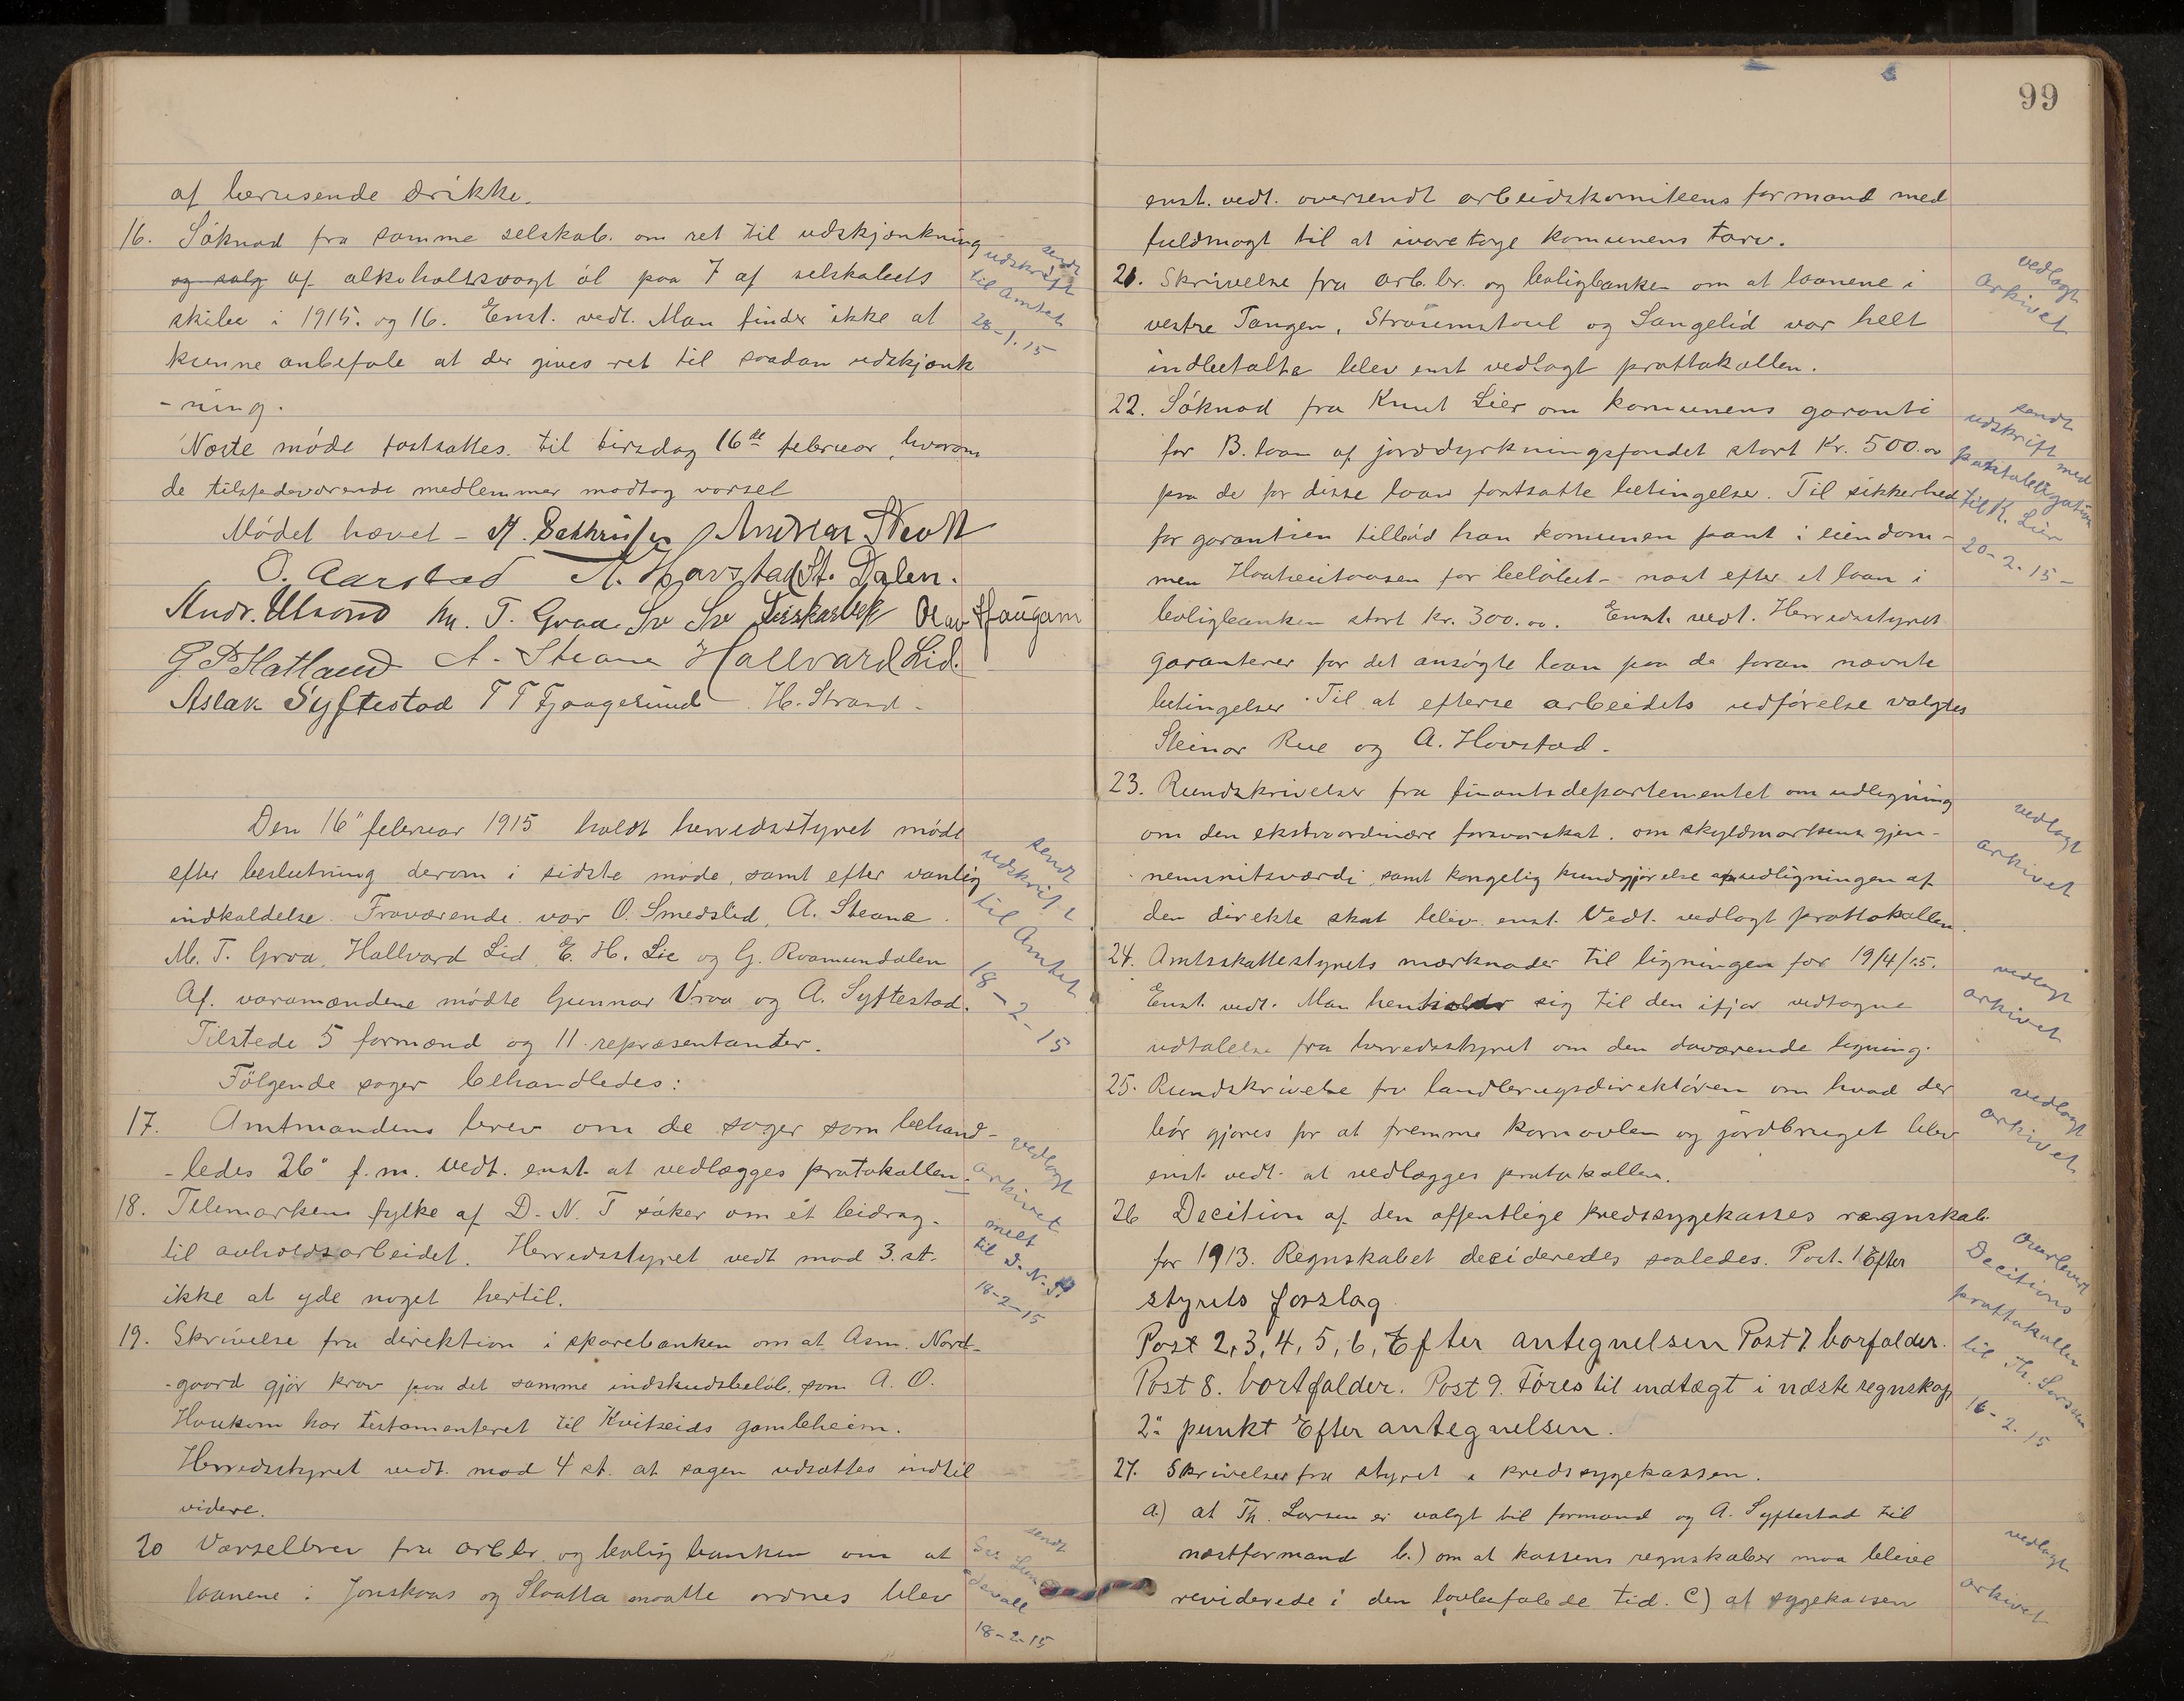 af berusende drikke.
16. Söknad fra samme selskab. om ret til udskjænkning
og salg af alkoholsvagt öl paa 7 af selskabets
skibe i 1915. og 16. Enst. vedt. Man finder ikke at
kunne anbefale at der gives ret til saadan udskjænk
-ning.
sendt
udskrift
til Amtet
28-1.15
Næste möde fastsattes til tirsdag 16de februar, hvorom
de tilstedeværende medlemmer modtog varsel
Mödet hævet –
O. Aarstad A. Havstad St. Dalen.
M. T. Groa Olav Haugann
G. P. Hatland A. Steane Hallvard Lid.
Aslak Syftestad T T Fjaagesund H. Strand.
Den 16" februar 1915 holdt herredsstyret möde
efter beslutning derom i sidste möde, samt efter vanlig
indkaldelse. Fraværende var O. Smedslid, A. Steane.
M. T. Groa, Hallvard Lid, E. H. Lie og G. Roamundalen
Af. varamændene mödte Gunnar Vraa og A. Syftestad.
Tilstede 5 formænd og 11 repræsentanter.
Fölgende sager behandledes:
sendt
udskrift
til Amtet
18-2-15
17. Amtmandens brev om de sager som behand-
-ledes 26" f.m. Vedt. enst. at vedlægges protokollen.
vedlagt
arkivet
18. Telemarkens fylke af D. N. T söker om et beidrag.
til avholdsarbeidet. Herredsstyret vedt mod 3. st.
ikke at yde noget hertil.
melt
til D. N. T.
18-2-15
19. Skrivelse fra direktion i sparebanken om at Asm. Nord-
-gaard gjör krav paa det samme indskudsbelöb. som A. O.
Haukom har testamenteret til Kvitseids gamleheim.
Herredsstyret vedt. mod 4 st. at sagen udsættes indtil
videre.
20 Varselbrev fra arb.br. og bolig banken om at
laanene i Jonskaas og Slaatta maatte ordnes blev
sendt
18-2-15
99
enst. vedt. oversendt arbeidskomiteens formand med
fuldmagt til at ivaretage komunens tarv.
21. Skrivelse fra arb.br. og boligbanken om at laanene i
vestre Tangen, Straumstoul og Langelid var helt
indbetalte blev enst vedlagt prottokollen.
vedlagt
Arkivet
22. Söknad fra Knut Lier om komunens garanti
for B. laan af jorddyrkningsfondet stort Kr. 500.00
paa de for disse laan fastsatte betingelser. Til sikkerhed
for garantien tilböd han komunen pant i eiendom-
men for belöbet – næst efter et laan i
boligbanken stort kr. 300.00. Enst. vedt. Herredsstyret
garanterer for det ansögte laan paa de foran nævnte
betingelser. Til at efterse arbeidets udförelse valgtes
Steinar Rue og A. Hovstad.
sendt
udskrift med
pantobligation
til K. Lier
20-2.15-
23. Rundskrivelser fra finantsdepartementet om udligning
om den ekstraordinære forsvarskat. om skyldmarkens gjen-
nemsnitsværdi, samt kongelig kundgjörelse udligningen af
den direkte skat blev enst. Vedt. vedlagt prottokollen.
vedlagt
arkivet
24. Amtsskattestyrets mærknader til ligningen for 19/4/15.
Enst. vedt. Man henholder sig til den ifjor vedtagne
udtalelse fra herredsstyret om den daværende ligning.
vedlagt
arkivet
25. Rundskrivelse fra landbrugsdirektören om hvad der
bör gjöres for at fremme kornavlen og jordbruget blev
enst. vedt. at vedlægges protokollen.
vedlagt
arkivet
26 Decition af den offentlige kredssygekasses rægnskab
for 1913. Regnskabet decideredes saaledes. Post. 1 Efter
styrets forslag
Post 2, 3, 4, 5, 6, Efter antegnelsen Post 7 borfalder.
Post 8. bortfalder. Post 9. Föres til indtægt i næste regnskap
2". punkt Efter antegnelsen.
overlevert
Decitions
prottokollen
til Th. Larsen
16-2.15
27. Skrivelser fra styret i kredssygekassen.
a.) at Th. Larsen er valgt til formand og A. Syftestad til
næstformand b.) om at kassens regnskaber maa blive
reviderede i den lovbefalede tid. C) at sygekassen
vedlagt
arkivet